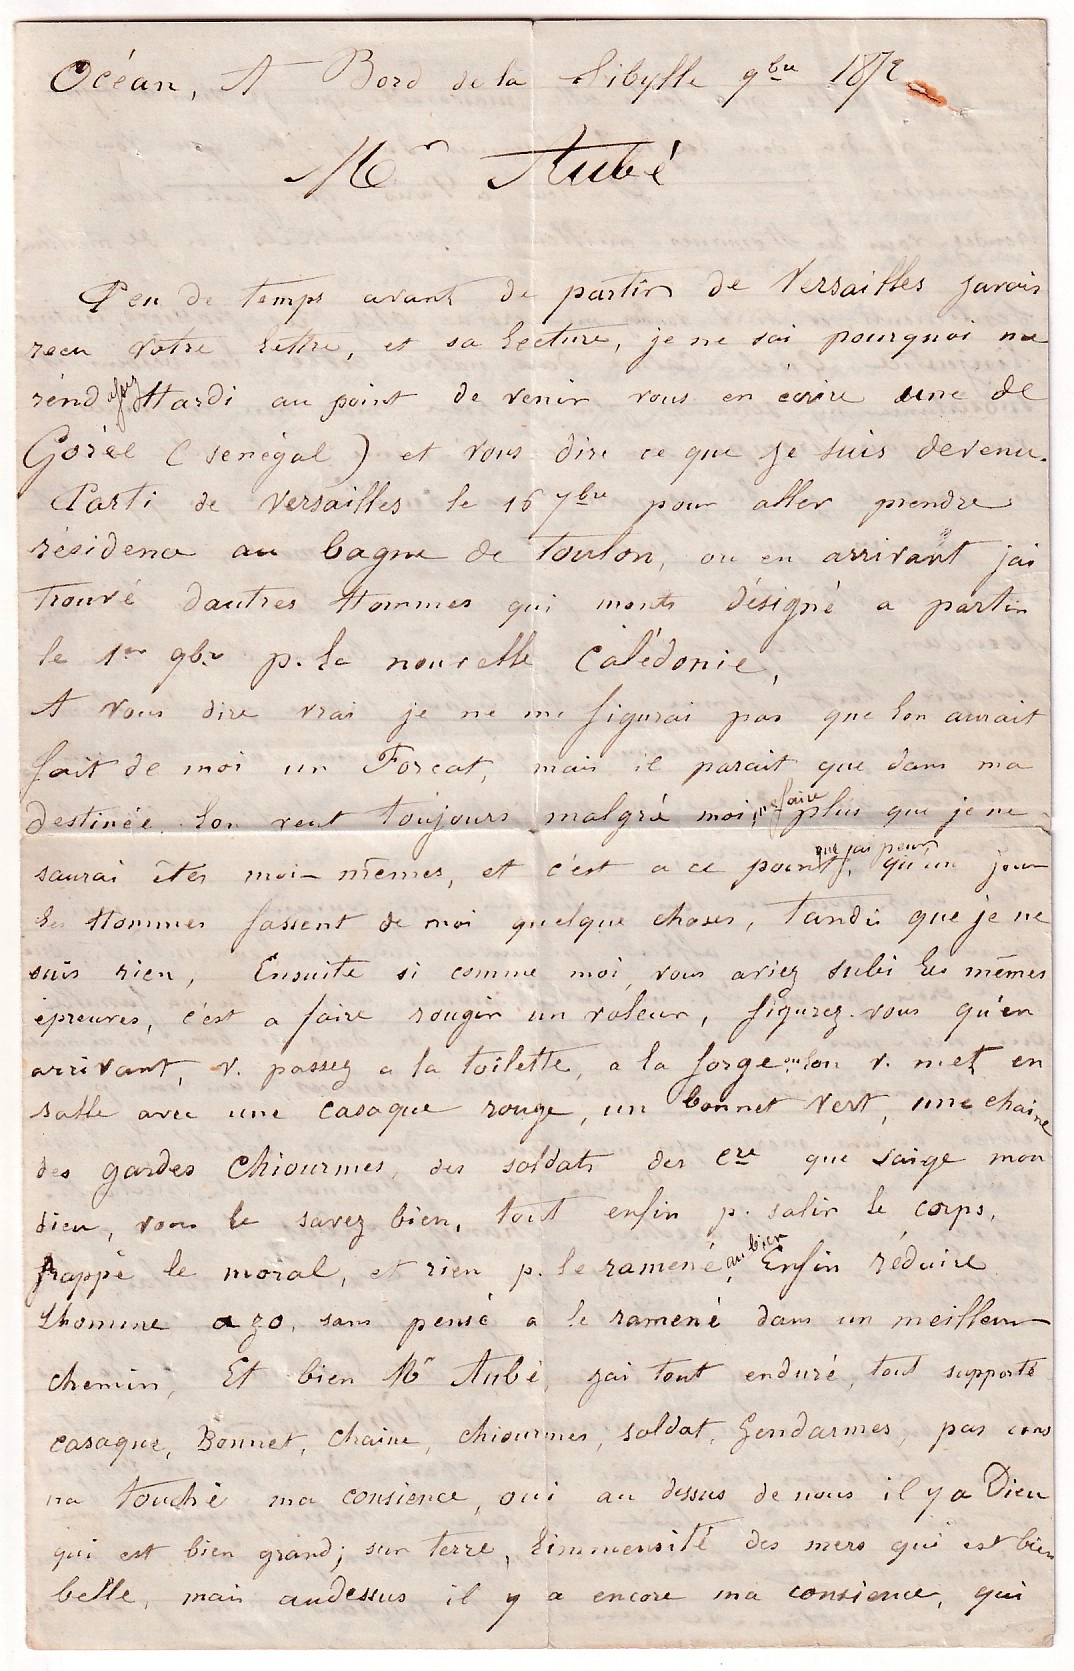 Océan, A Bord de la Sibylle 9bre 1872
Mr Aubé
Peu de temps avant de partir de Versailles javais
recu votre lettre, et sa lecture, je ne sai pourquoi me
rend assez Hardi au point de venir vous en écrire une de
Gorée (sénégal) et vous dire ce que je suis devenu.
Parti de Versailles le 16 7bre pour aller prendre
résidence au bagne de toulon, ou en arrivant jai
trouvé dautres Hommes qui monts désigné a partir
le 1er 9bre p. la nouvelle Calédonie,
A vous dire vrai je ne me figurai pas que lon aurait
fait de moi un Forcat, mais il parait que dans ma
destinée lon veut toujours malgré moi, me faire plus que je ne
saurai êtes moi-mêmes, et c'est a ce point, que jai peur qu'un jour
les Hommes fassent de moi quelque choses, tandis que je ne
suis rien, Ensuite si comme moi vous aviez subi les mêmes
épreuves, c'est a faire rougir un voleur, figurez-vous qu'en
arrivant, v. passez a la toilette, a la forge, ou lon v. met en
salle avec une casaque rouge, un bonnet vert, une chaine
des gardes Chiourmes, des soldats des cre que saige mon
dieu, vous le savez bien, tout enfin p. salir le corps,
frappé le moral, et rien p. le ramené au bien, Enfin réduire
Lhomme a zo, sans pensé a le ramené dans un meilleur
chemin, Et bien Mr Aubé, jai tout enduré, tout supporté
casaque, Bonnet, chaine, chiourmes, soldat, Gendarmes, pas cons
na touché ma consience, oui au dessus de nous il y a Dieu
qui est bien grand; sur terre, Limmensité des mers qui est bien
belle, mais audessus il y a encore ma consience, qui